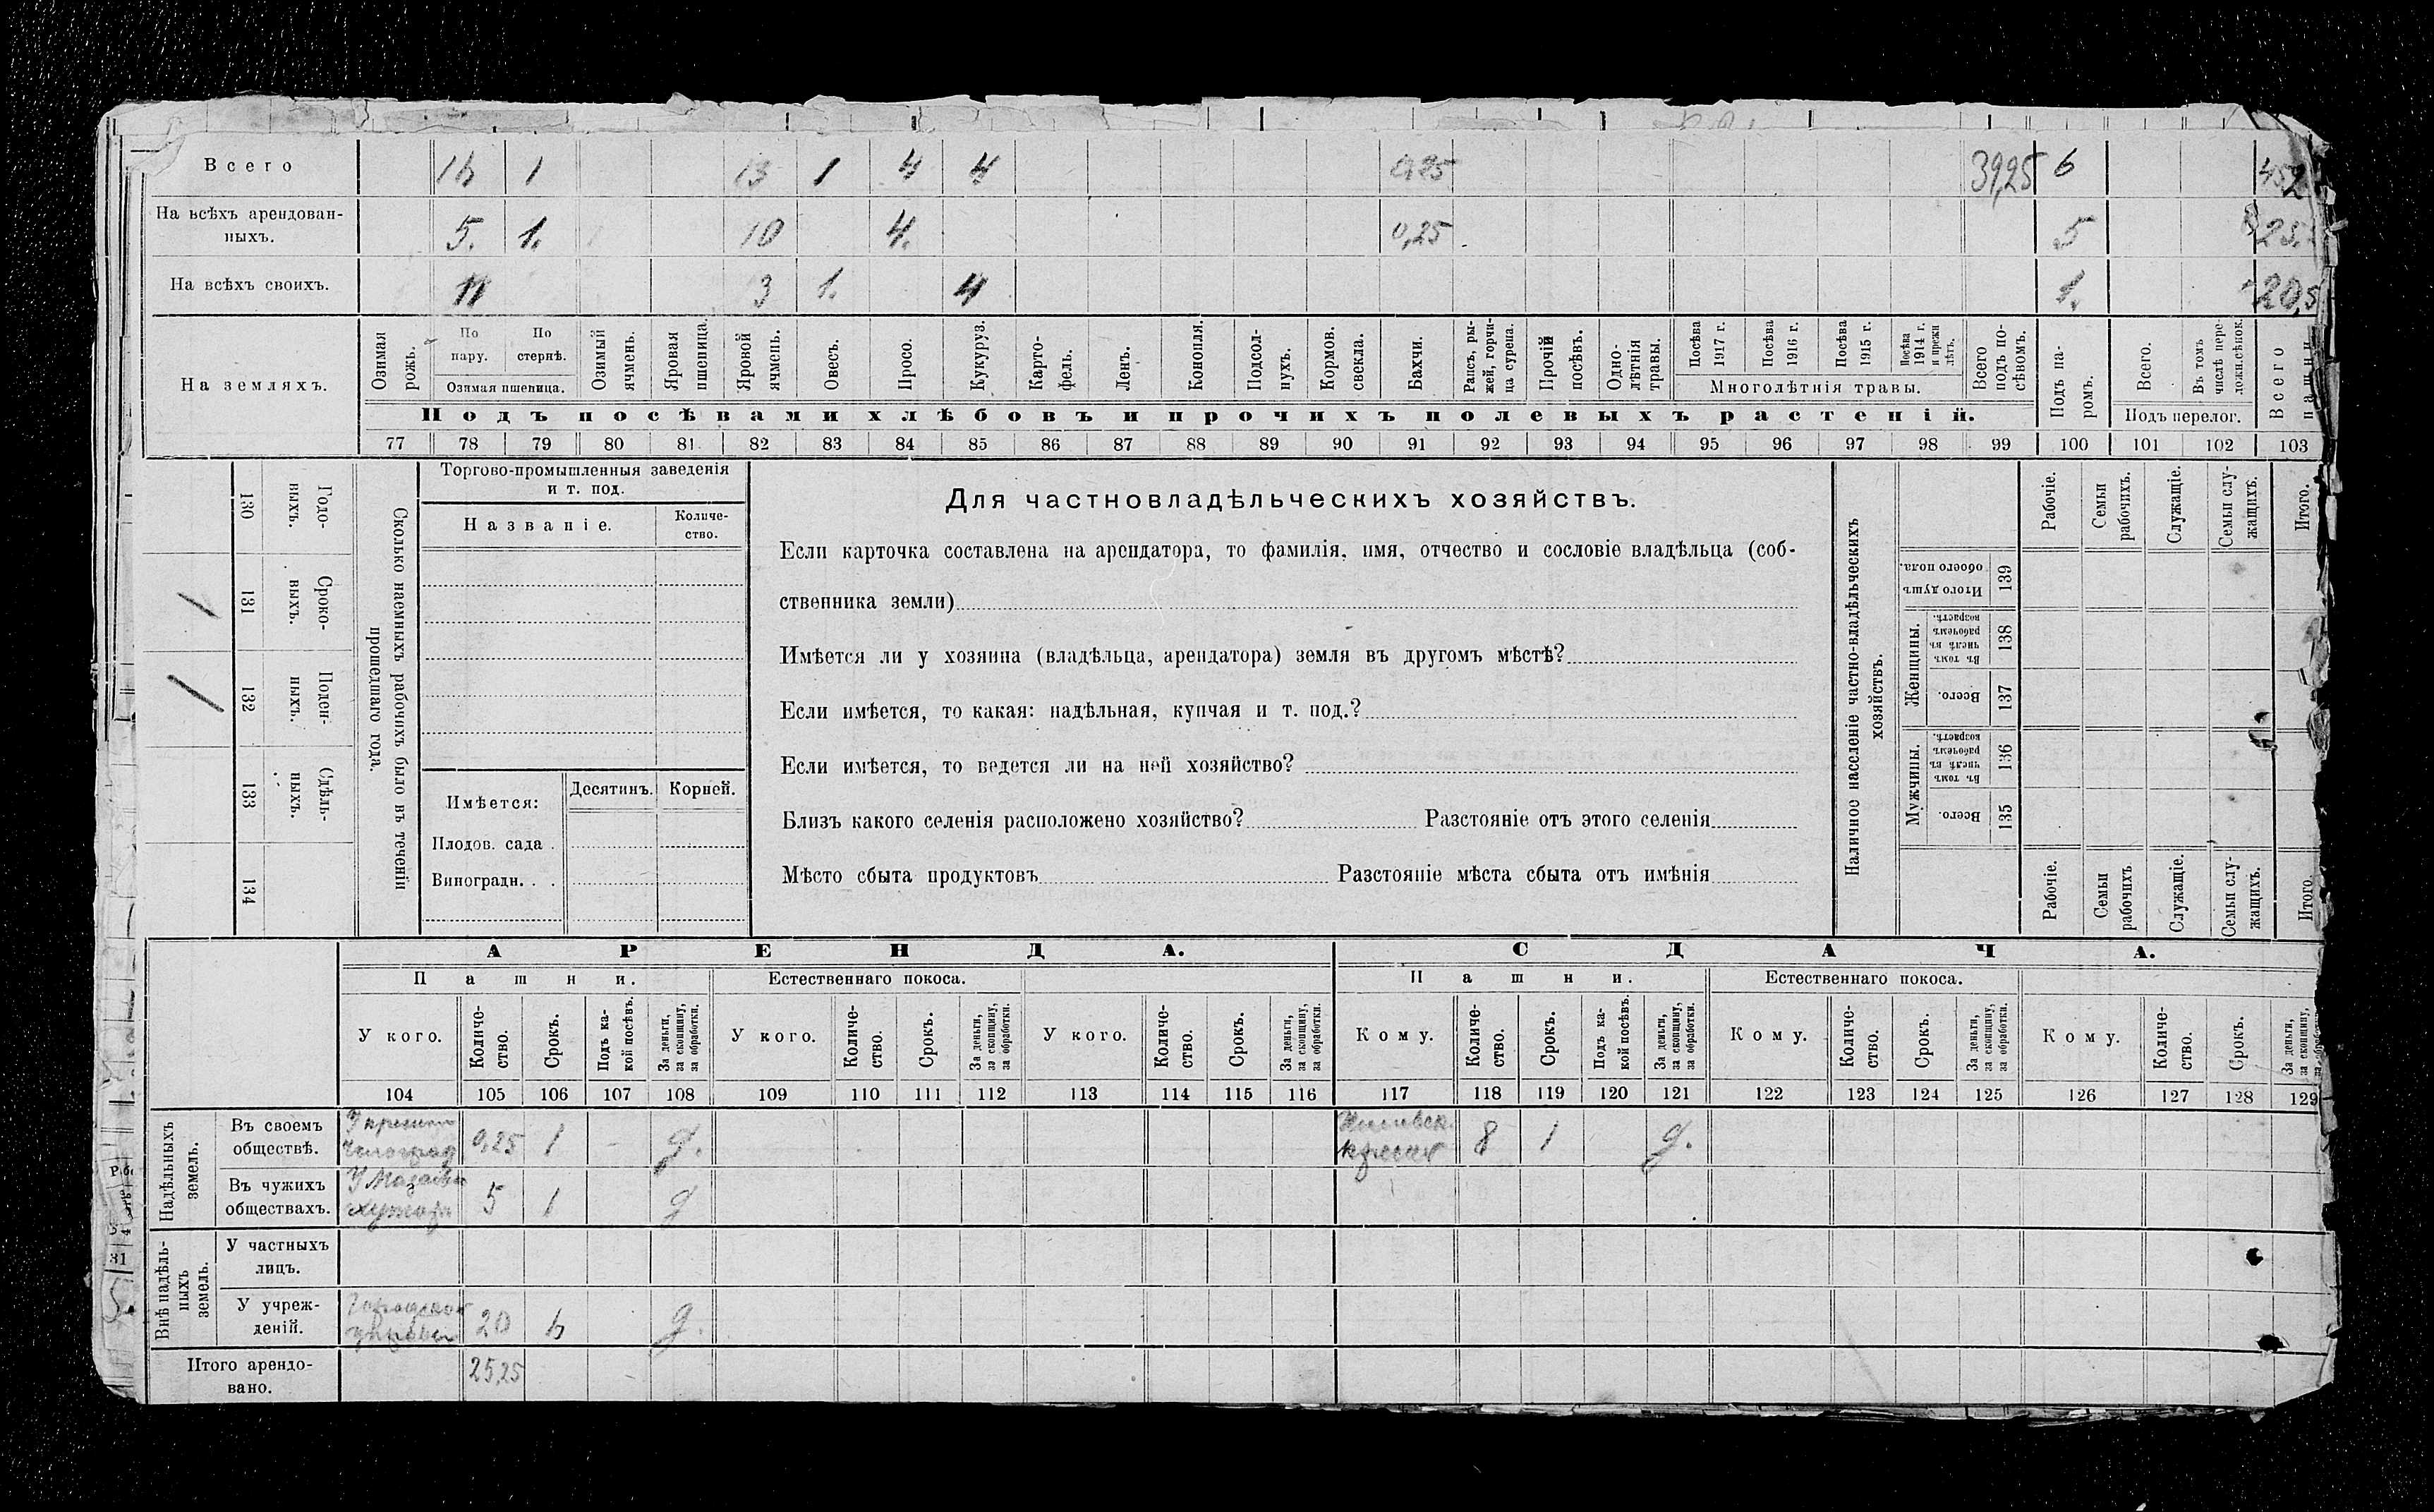 Всего 16 1 13 1 4 4 0,25 39,25 6
На всѣхъ арендован-
ныхъ. 5. 1. 10 4. 0,25 5 25.
На всѣхъ своихъ. 11 3 1. 4 1. 20,5
На земляхъ.
Озимая рожь.
По пару.
По стернѣ.
Озимая пшеница.
Озимый ячмень.
Яровая пшеница.
Яровой ячмень.
Овесъ.
Просо.
Кукуруз.
Карто-
фель.
Ленъ.
Конопля.
Подсол-
нухъ.
Кормов. свекла.
Бахчи.
Рапсъ, ры-
жей, горчи-
ца сурепа.
Прочій посѣвъ.
Одно-
лѣтнія травы.
Посѣва 1917 г.
Посѣва 1916 г.
Посѣва 1915 г.
Посѣва 1914 г. и прежн лѣтъ.
Многолѣтнія травы.
Всего подъ по-
сѣвомъ.
Подъ посѣвами хлѣбовъ и прочихъ полевыхъ растеній.
Подъ па-
ромъ.
Всего.
Въ томъ числѣ пере-
ложн.сѣнок.
Подъ перелог.
Всего пашни
77 78 79 80 81 82 83 84 85 86 87 88 89 90 91 92 93 94 95 96 97 98 99 100 101 102 103
Годо-
выхъ.
130
Сроко-
выхъ.
131
Поден-
ныхъ.
132
Сдѣль-
ныхъ.
133
134
Сколько наемныхъ рабочихъ было въ теченіи
прошедшаго года.
Торгово-промышленныя заведенія
и т. под.
Названіе.
Количе-
ство.
Имѣется:
Десятинъ. Корней.
Плодов. сада .
Виноградн. . .
Для частновладѣльческихъ хозяйствъ.
Если карточка составлена на арендатора, то фамилія, имя, отчество и сословіе владѣльца (соб-
ственника земли)
Имѣется ли у хозяина (владѣльца, арендатора) земля въ другомъ мѣстѣ?
Если имѣется, то какая: надѣльная, купчая и т. под.?
Если имѣется, то ведется ли на ней хозяйство?
Близъ какого селенія расположено хозяйство? Разстояніе отъ этого селенія
Мѣсто сбыта продуктовъ Разстояніе мѣста сбыта отъ имѣнія
Наличное населеніе частно-владѣльческихъ
хозяйствъ.
Рабочіе.
Семьи рабочихъ.
Служащіе.
Семьи слу-
жащихъ.
Итого.
Итого душъ обоего пола.
139
Женщины.
Въ томъ числѣ въ рабочемъ возрастѣ.
138
Всего.
137
Мужчины.
Въ томъ числѣ въ рабочемъ возрастѣ.
136
Всего.
135
Рабочіе.
Семьи рабочихъ
Служащіе.
Семьи слу-
жащихъ.
Итого.
АРЕНДА. СДАЧА.
Пашни. Естественнаго покоса. Пашни. Естественнаго покоса.
У кого.
Количе-
ство.
Срокъ.
Подъ ка-
кой посѣвъ.
За деньги, за скопщину, за обработки.
У кого.
Количе-
ство.
Срокъ.
За деньги, за скопщину, за обработки.
У кого.
Количе-
ство.
Срокъ.
За деньги, за скопщину, за обработки.
Кому.
Количе-
ство.
Срокъ.
Подъ ка-
кой посѣвъ.
За деньги, за скопщину, за обработки.
Кому.
Количе-
ство.
Срокъ.
За деньги, за скопщину, за обработки.
Кому.
Количе-
ство.
Срокъ.
За деньги, за скопщину,
104 105 106 107 108 109 110 111 112 113 114 115 116 117 118 119 120 121 122 123 124 125 126 127 128 129
Надѣльныхъ
земель.
Въ своемъ
обществѣ. 0,25 1 - д. 8 1 д.
Въ чужихъ
обществахъ. 5 1 д
Внѣ надѣль-
ныхъ
земель.
У частныхъ
лицъ.
У учреж-
деній. 20 6 д.
Итого арендо-
вано. 25,25
81